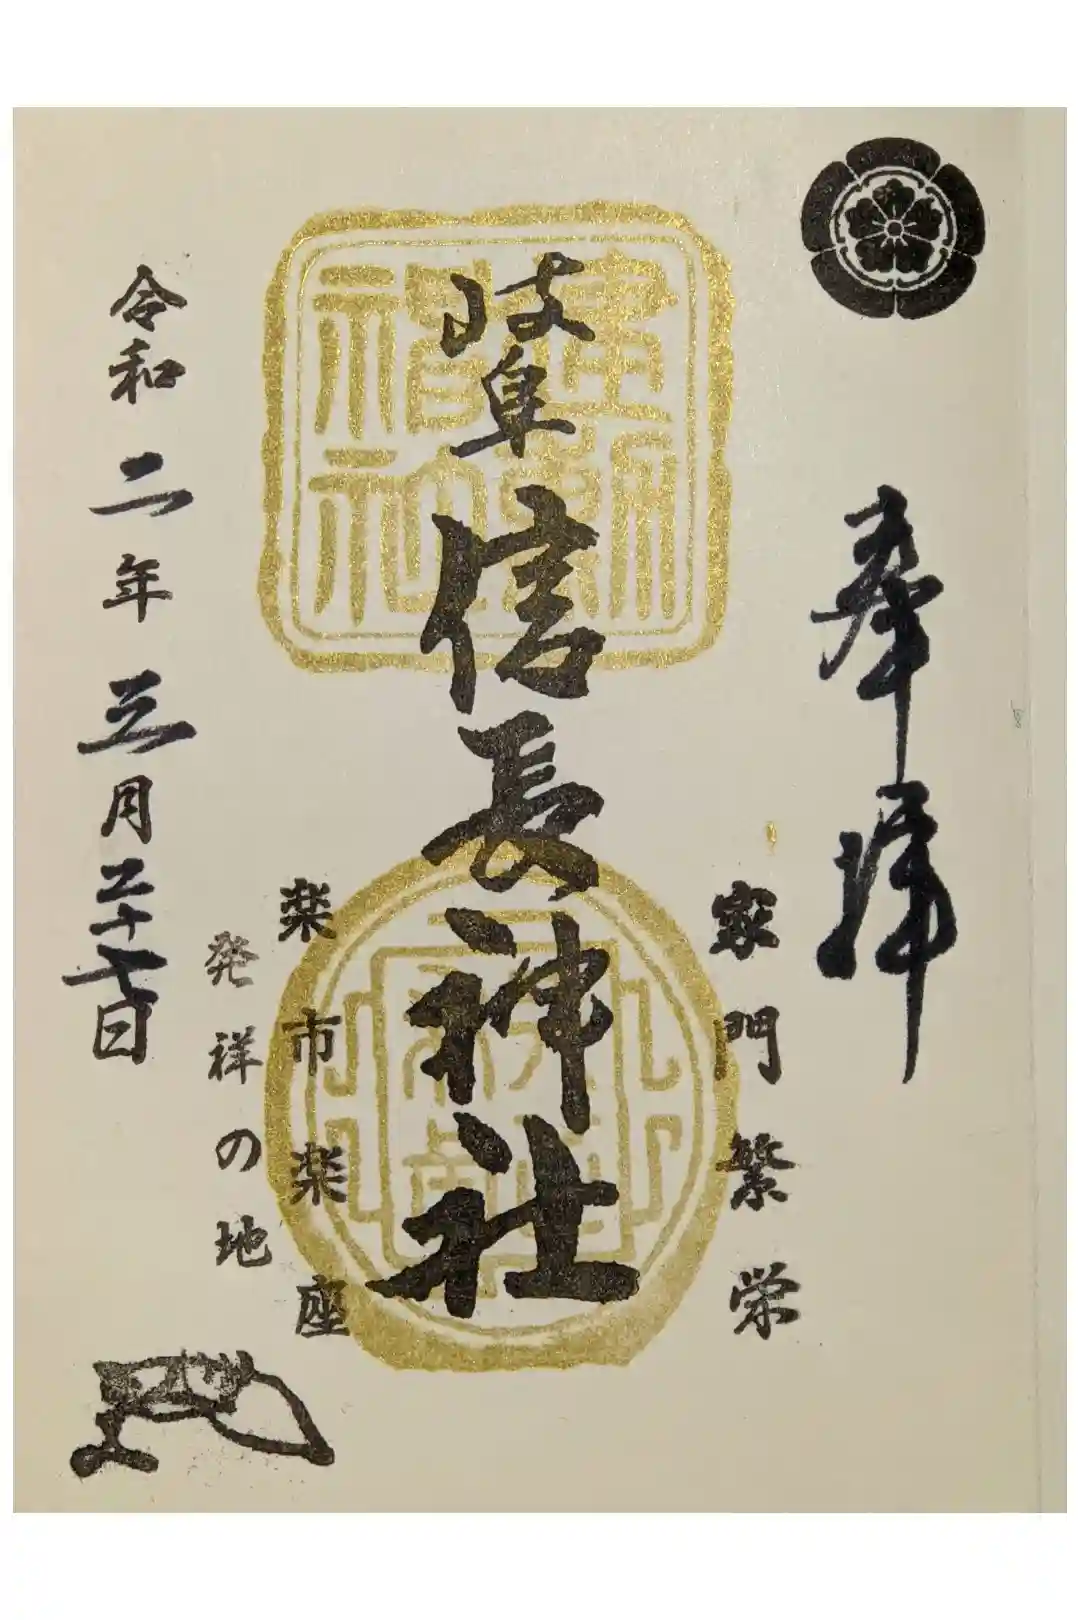 奉拝
家門繁栄
岐阜信長神社
建勲
神社
楽市楽座
発祥の地
令和二年三月二十七日